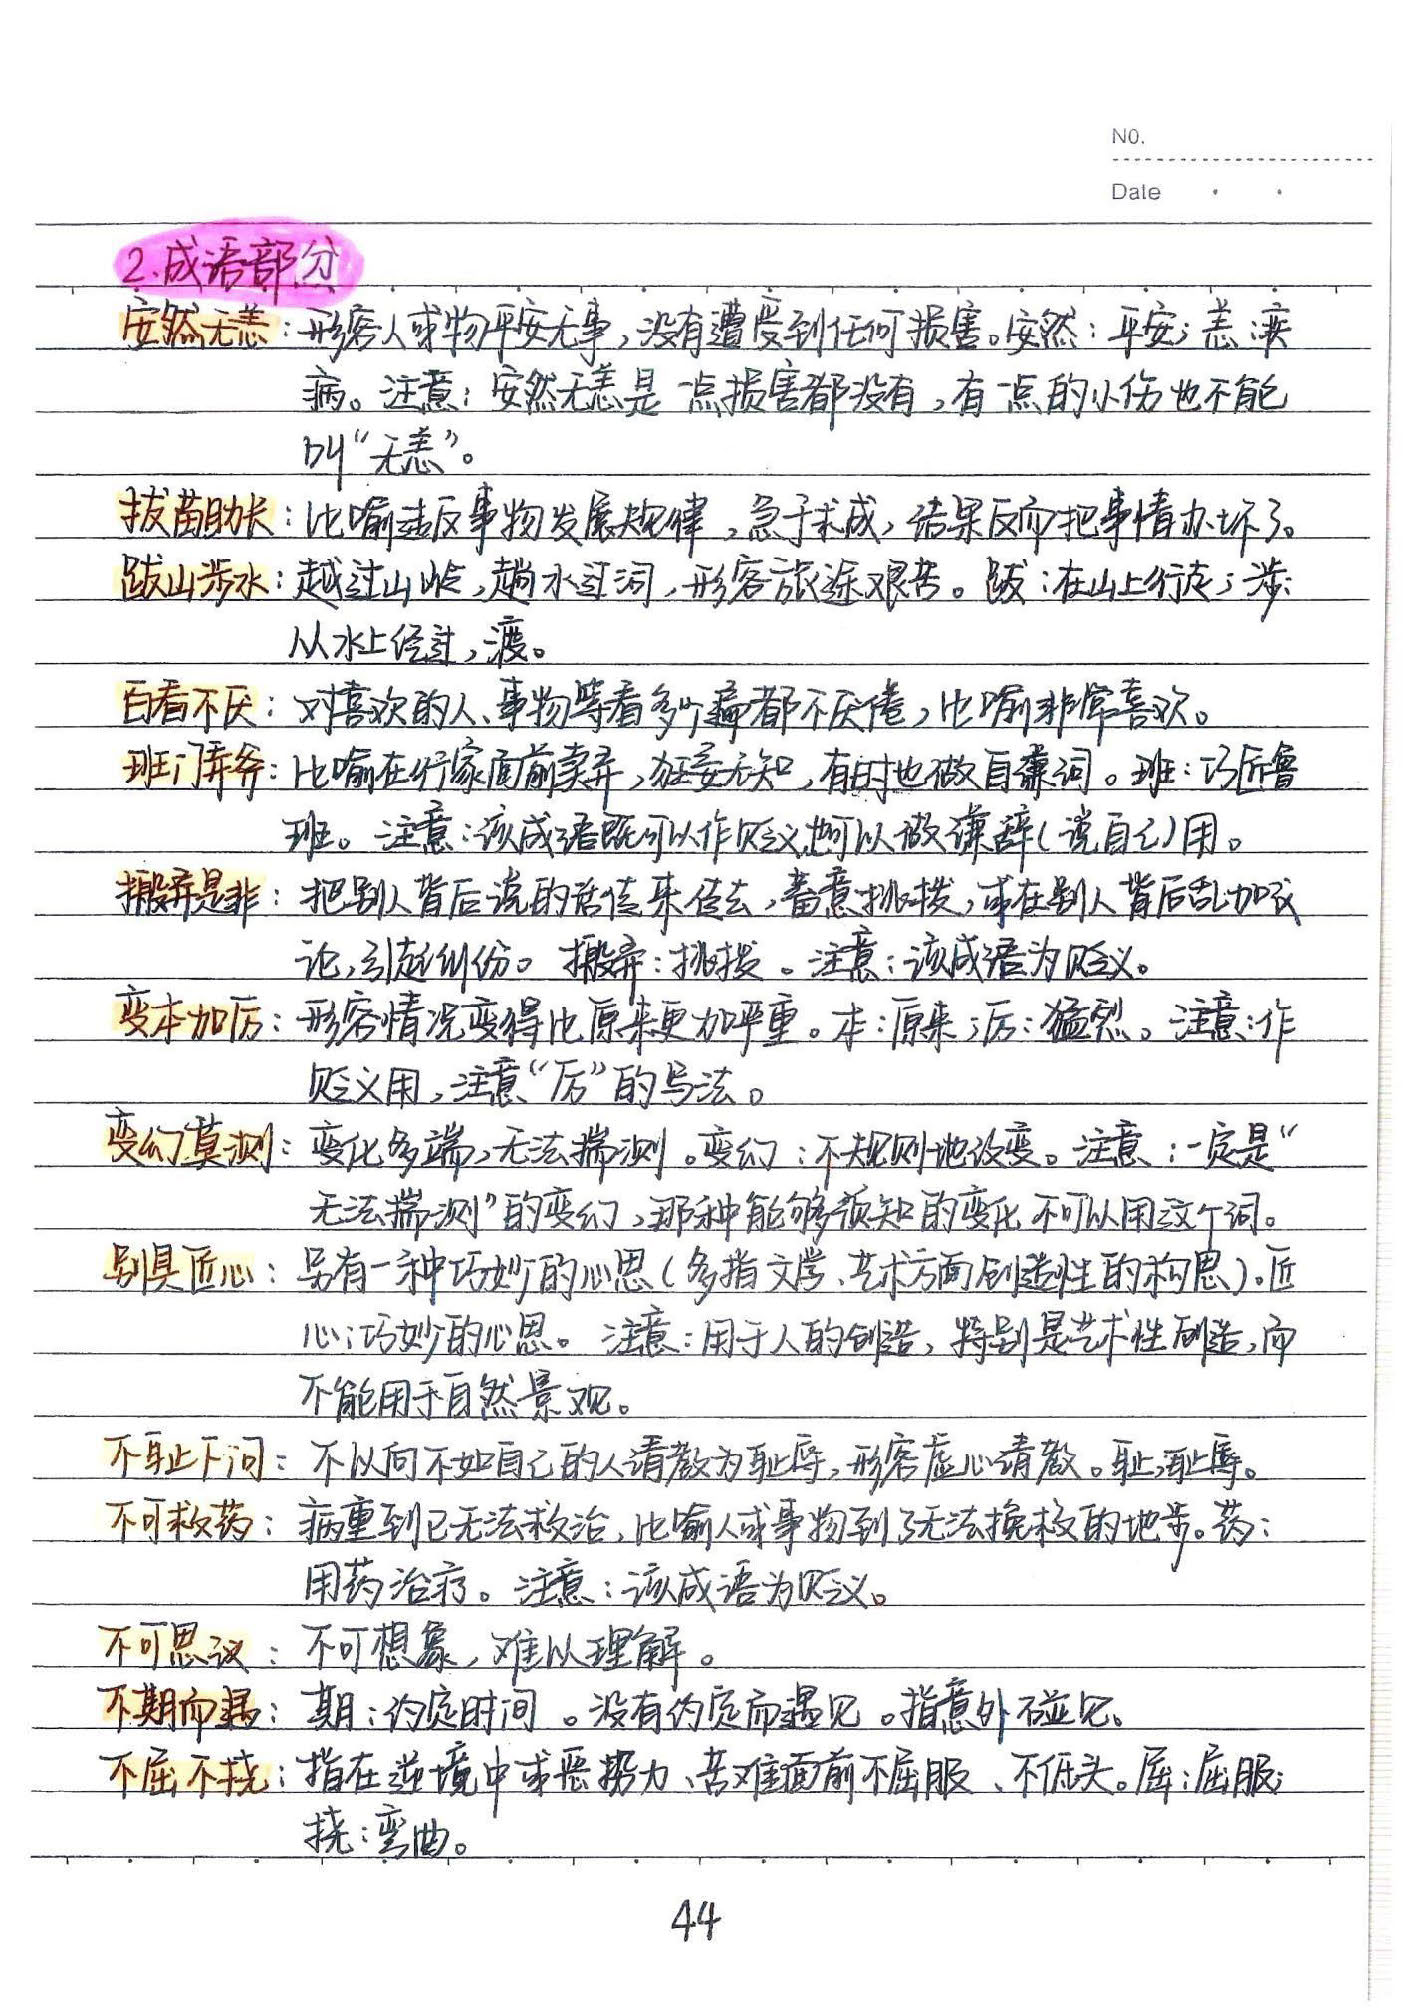 NO.
Date
2.成语部分
安然无恙：形容人或物平安无事，没有遭受到任何损害。安然：平安；恙：疾
病。注意：安然无恙是一点损害都没有，有一点的小伤也不能
叫“无恙”。
拔苗助长：比喻违反事物发展规律，急于求成，结果反而把事情办坏了。
跋山涉水：越过山岭，趟水过河，形容旅途艰苦。跋：在山上行走；涉：
从水上经过，渡。
百看不厌：对喜欢的人、事物等看多少遍都不厌倦，比喻非常喜欢。
班门弄斧：比喻在行家面前卖弄，狂妄无知，有时也做自谦词。班：巧匠鲁
班。注意：该成语既可以作贬义，也可以做谦辞（说自己）用。
搬弄是非：把别人背后说的话传来传去，蓄意挑拨，或在别人背后乱加议
论，引起纠纷。搬弄：挑拨。注意：该成语为贬义。
变本加厉：形容情况变得比原来更加严重。本：原来；厉：猛烈。注意：作
贬义用，注意“厉”的写法。
变幻莫测：变化多端，无法揣测。变幻：不规则地改变。注意：一定是“
无法揣测”的变幻，那种能够预知的变化不可以用这个词。
别具匠心：另有一种巧妙的心思（多指文学、艺术方面创造性的构思）。匠
心：巧妙的心思。注意：用于人的创造，特别是艺术性创造，而
不能用于自然景观。
不耻下问：不以向不如自己的人请教为耻辱，形容虚心请教。耻：耻辱。
不可救药：病重到已无法救治，比喻人或事物到了无法挽救的地步。药：
用药治疗。注意：该成语为贬义。
不可思议：不可想象，难以理解。
不期而遇：期：约定时间。没有约定而遇见。指意外碰见。
不屈不挠：指在逆境中或恶势力、苦难面前不屈服、不低头。屈：屈服；
挠：弯曲。
44